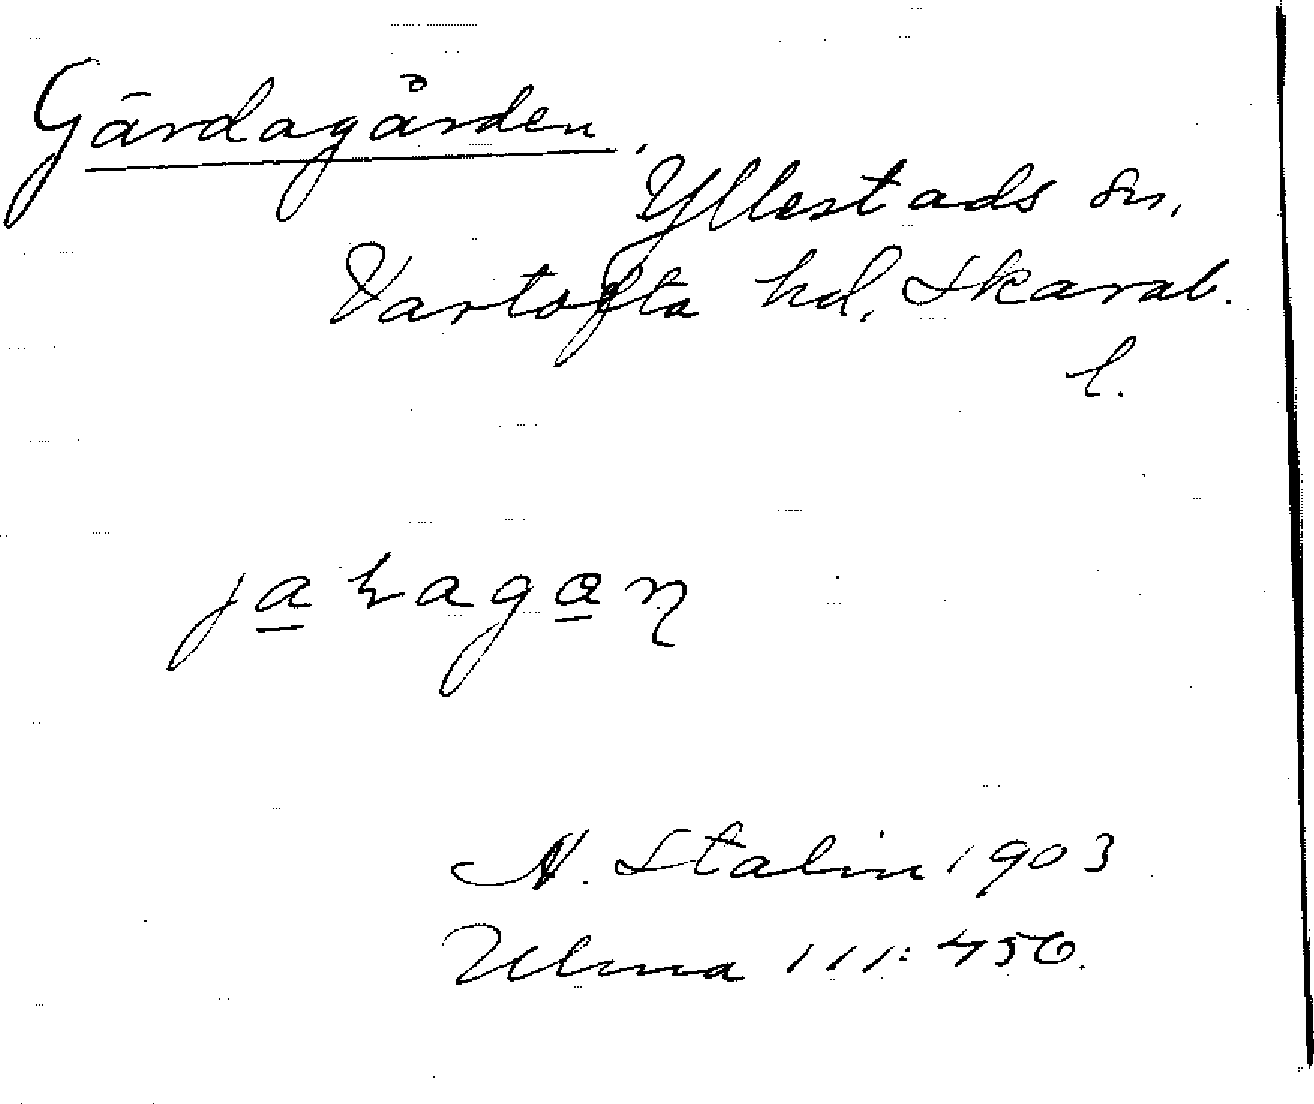 Gärdagården.
Yllestads sn,
Vartofta hd, Skarab.
l.
N. Stalin 1903
Ulma 111:456.